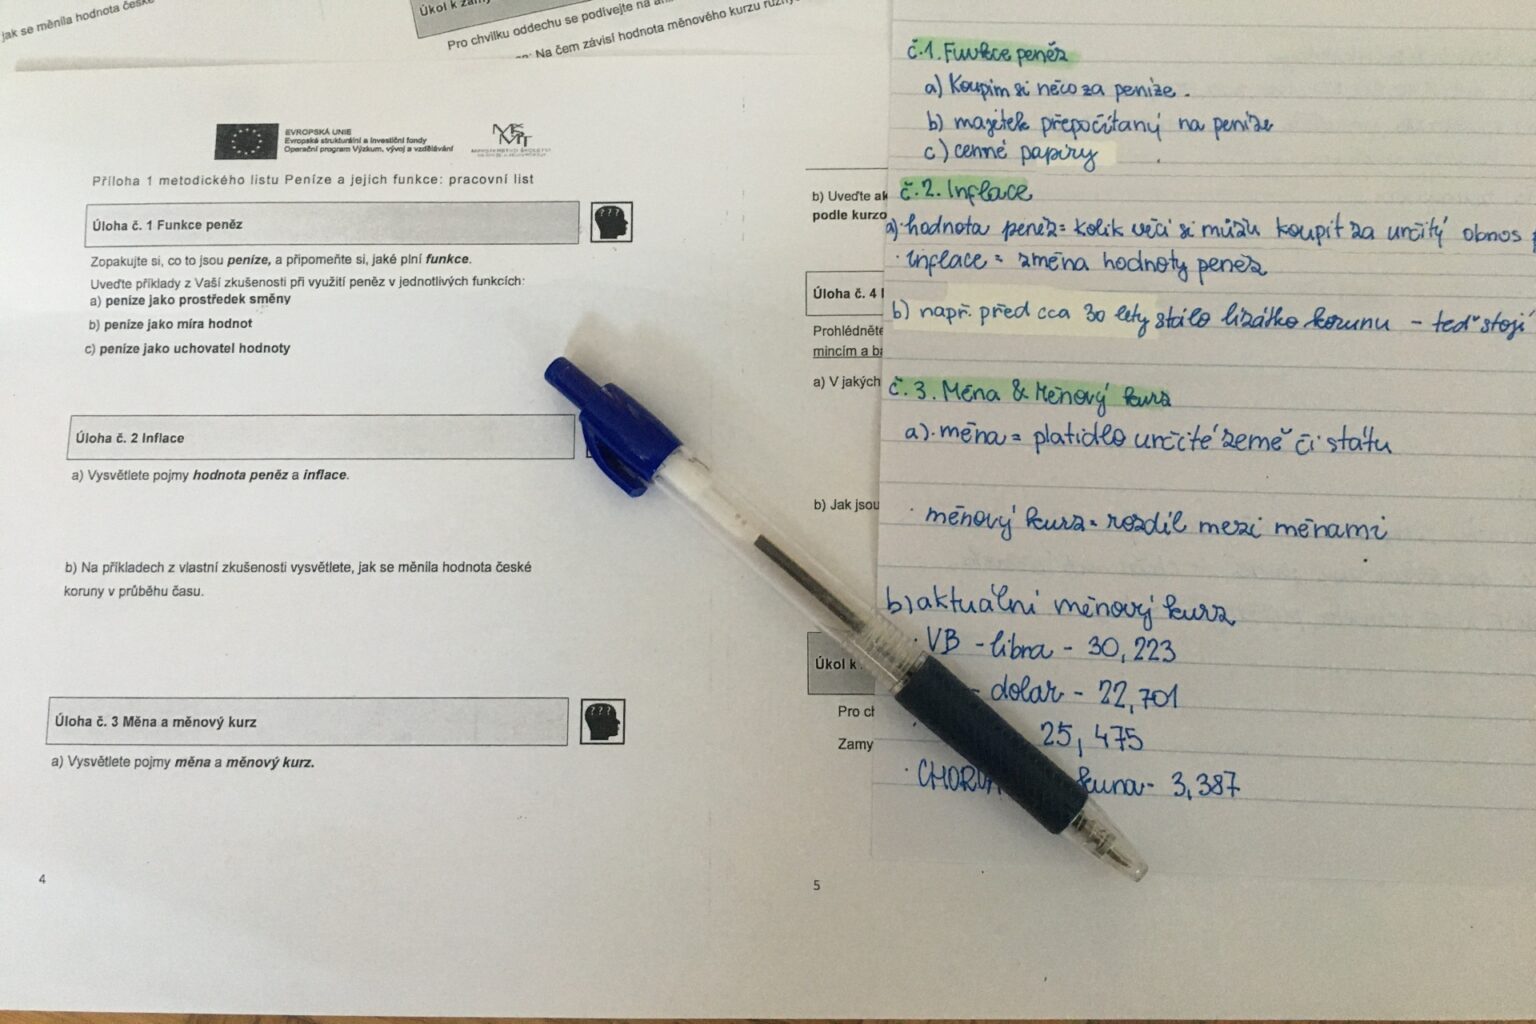 jak se měnila hodnota české
Úkol k zamy
Pro chvilku oddechu se podívejte na
Na čem závisí hodnota měnového kurzu různý
EVROPSKÁ UNIE
Evropské strukturální a investiční fondy
Operační program Výzkum, vývoj a vzdělávání
MŠMT
MINISTERSTVO ŠKOLSTVÍ,
MLÁDEŽE A TĚLOVÝCHOVY
Příloha 1 metodického listu Peníze a jejich funkce: pracovní list
Úloha č. 1 Funkce peněz
???
Zopakujte si, co to jsou peníze, a připomeňte si, jaké plní funkce.
Uveďte příklady z Vaší zkušenosti při využití peněz v jednotlivých funkcích:
a) peníze jako prostředek směny
b) peníze jako míra hodnot
c) peníze jako uchovatel hodnoty
Úloha č. 2 Inflace
a) Vysvětlete pojmy hodnota peněz a inflace.
b) Na příkladech z vlastní zkušenosti vysvětlete, jak se měnila hodnota české
koruny v průběhu času.
Úloha č. 3 Měna a měnový kurz
???
a) Vysvětlete pojmy měna a měnový kurz.
4
b) Uveďte ak
podle kurzo
Úloha č. 4
Prohlédněte
mincím a ba
a) V jakých
b) Jak jsou
Úkol k
Pro ch
Zamy
5
č.1. Funkce peněz
a) Koupím si něco za peníze.
b) majetek přepočítaný na peníze
c) cenné papíry
č.2. Inflace
a)·hodnota peněz= kolik věcí si můžu koupit za určitý obnos
·inflace = změna hodnoty peněz
b) např. před cca 30 lety stálo lízátko korunu - teď stojí
č.3. Měna & Měnový kurz
a)·měna = platidlo určité země či státu
·měnový kurz= rozdíl mezi měnami
b) aktuální měnový kurz
·VB - libra - 30,223
- dolar - 22,701
25,475
·CHORV kuna- 3,387